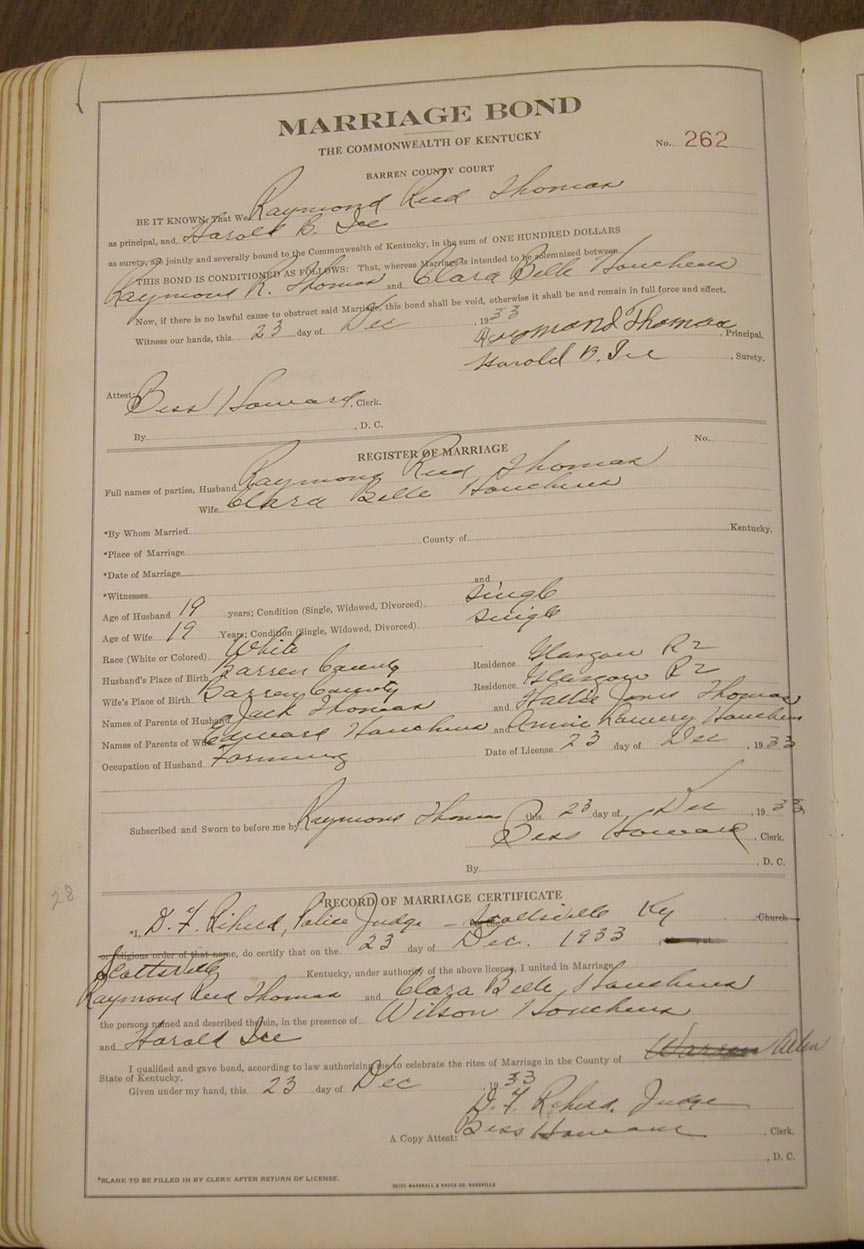 MARRIAGE BOND
THE COMMONWEALTH OF KENTUCKY
No. 262
BARREN COUNTY COURT
BE IT KNOWN: That We Raymond Reed Thomas
as principal, and Harold B. Ice
as surety, are jointly and severally bound to the Commonwealth of Kentucky, in the sum of ONE HUNDRED DOLLARS
THIS BOND IS CONDITIONED AS FOLLOWS: That, whereas Marriage is intended to be solemnized between
Raymond R. Thomas and Clara Belle Houchens
Now, if there is no lawful cause to obstruct said Marriage, this bond shall be void, otherwise it shall be and remain in full force and effect.
Witness our hands, this 23 day of Dec , 1933
Raymond Thomas , Principal.
Harold B. Ice , Surety.
Attest: Bess Howard , Clerk.
By , D. C.
REGISTER OF MARRIAGE No.
Full names of parties, Husband Raymond Reed Thomas
Wife Clara Belle Houchens
*By Whom Married
*Place of Marriage County of Kentucky.
*Date of Marriage
*Witnesses and
Age of Husband 19 years; Condition (Single, Widowed, Divorced) single
Age of Wife 19 Years; Condition (Single, Widowed, Divorced) single
Race (White or Colored) White
Husband's Place of Birth Barren County Residence Glasgow R2
Wife's Place of Birth Barren County Residence Glasgow R2
Names of Parents of Husband Jack Thomas and Hallie Jones Thomas
Names of Parents of Wife Edward Houchens and Annie Houchens
Occupation of Husband Farming Date of License 23 day of Dec , 1933
Subscribed and Sworn to before me by Raymond Thomas this 23 day of Dec , 1933
Bess Howard , Clerk.
By , D. C.
28
RECORD OF MARRIAGE CERTIFICATE
*I, D. F. Police Judge - Scottsville Ky Church
or religious order of that name, do certify that on the 23 day of Dec. 1933 , at
Scottsville Kentucky, under authority of the above license, I united in Marriage
Raymond Reed Thomas and Clara Belle Houchens
the persons named and described therein, in the presence of Wilson Houchens
and Harold Ice
I qualified and gave bond, according to law authorizing me to celebrate the rites of Marriage in the County of Warren Allen
State of Kentucky.
Given under my hand, this 23 day of Dec , 1933
D. F. Judge
A Copy Attest: Bess Howard , Clerk.
, D. C.
*BLANK TO BE FILLED IN BY CLERK AFTER RETURN OF LICENSE.
MARSHALL & BRUCE CO. NASHVILLE